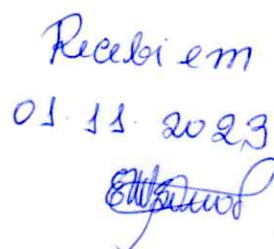 Recebi em
01.11.2023